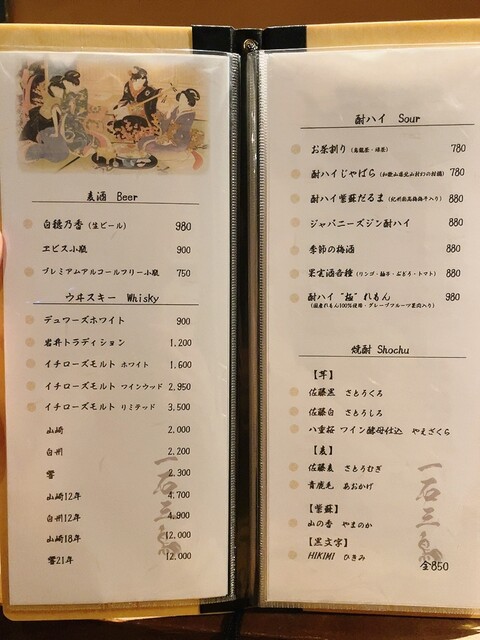 麦酒 Beer
白穂乃香 (生ビール) 980
ヱビス小瓶 900
プレミアムアルコールフリー小瓶 750
ウヰスキー Whisky
デュワーズホワイト 900
岩井トラディション 1.200
イチローズモルト ホワイト 1.600
イチローズモルト ワインウッド 2.950
イチローズモルト リミテッド 3,500
山崎 2,000
白州 2,200
響 2,300
山崎12年 4,700
白州12年 4,900
山崎18年 12,000
響21年 12,000
一石三
酎ハイ Sour
お茶割り (烏龍茶・緑茶) 780
酎ハイじゃばら (和歌山県北山村幻の柑橘) 780
酎ハイ紫蘇だるま (紀州南高梅梅干入り) 880
ジャパニーズジン酎ハイ 880
季節の梅酒 880
果実酒各種 (リンゴ・柚子・ぶどう・トマト) 880
酎ハイ "極" れもん 980
(国産れもん100%使用・グレープフルーツ果肉入り)
焼酎 Shochu
【芋】
佐藤黒 さとうくろ
佐藤白 さとうしろ
八重桜 ワイン酵母仕込 やえざくら
【麦】
佐藤麦 さとうむぎ
青鹿毛 あおかげ
【紫蘇】
山の香 やまのか
【黒文字】
HIKIMI ひきみ
全850
一石三